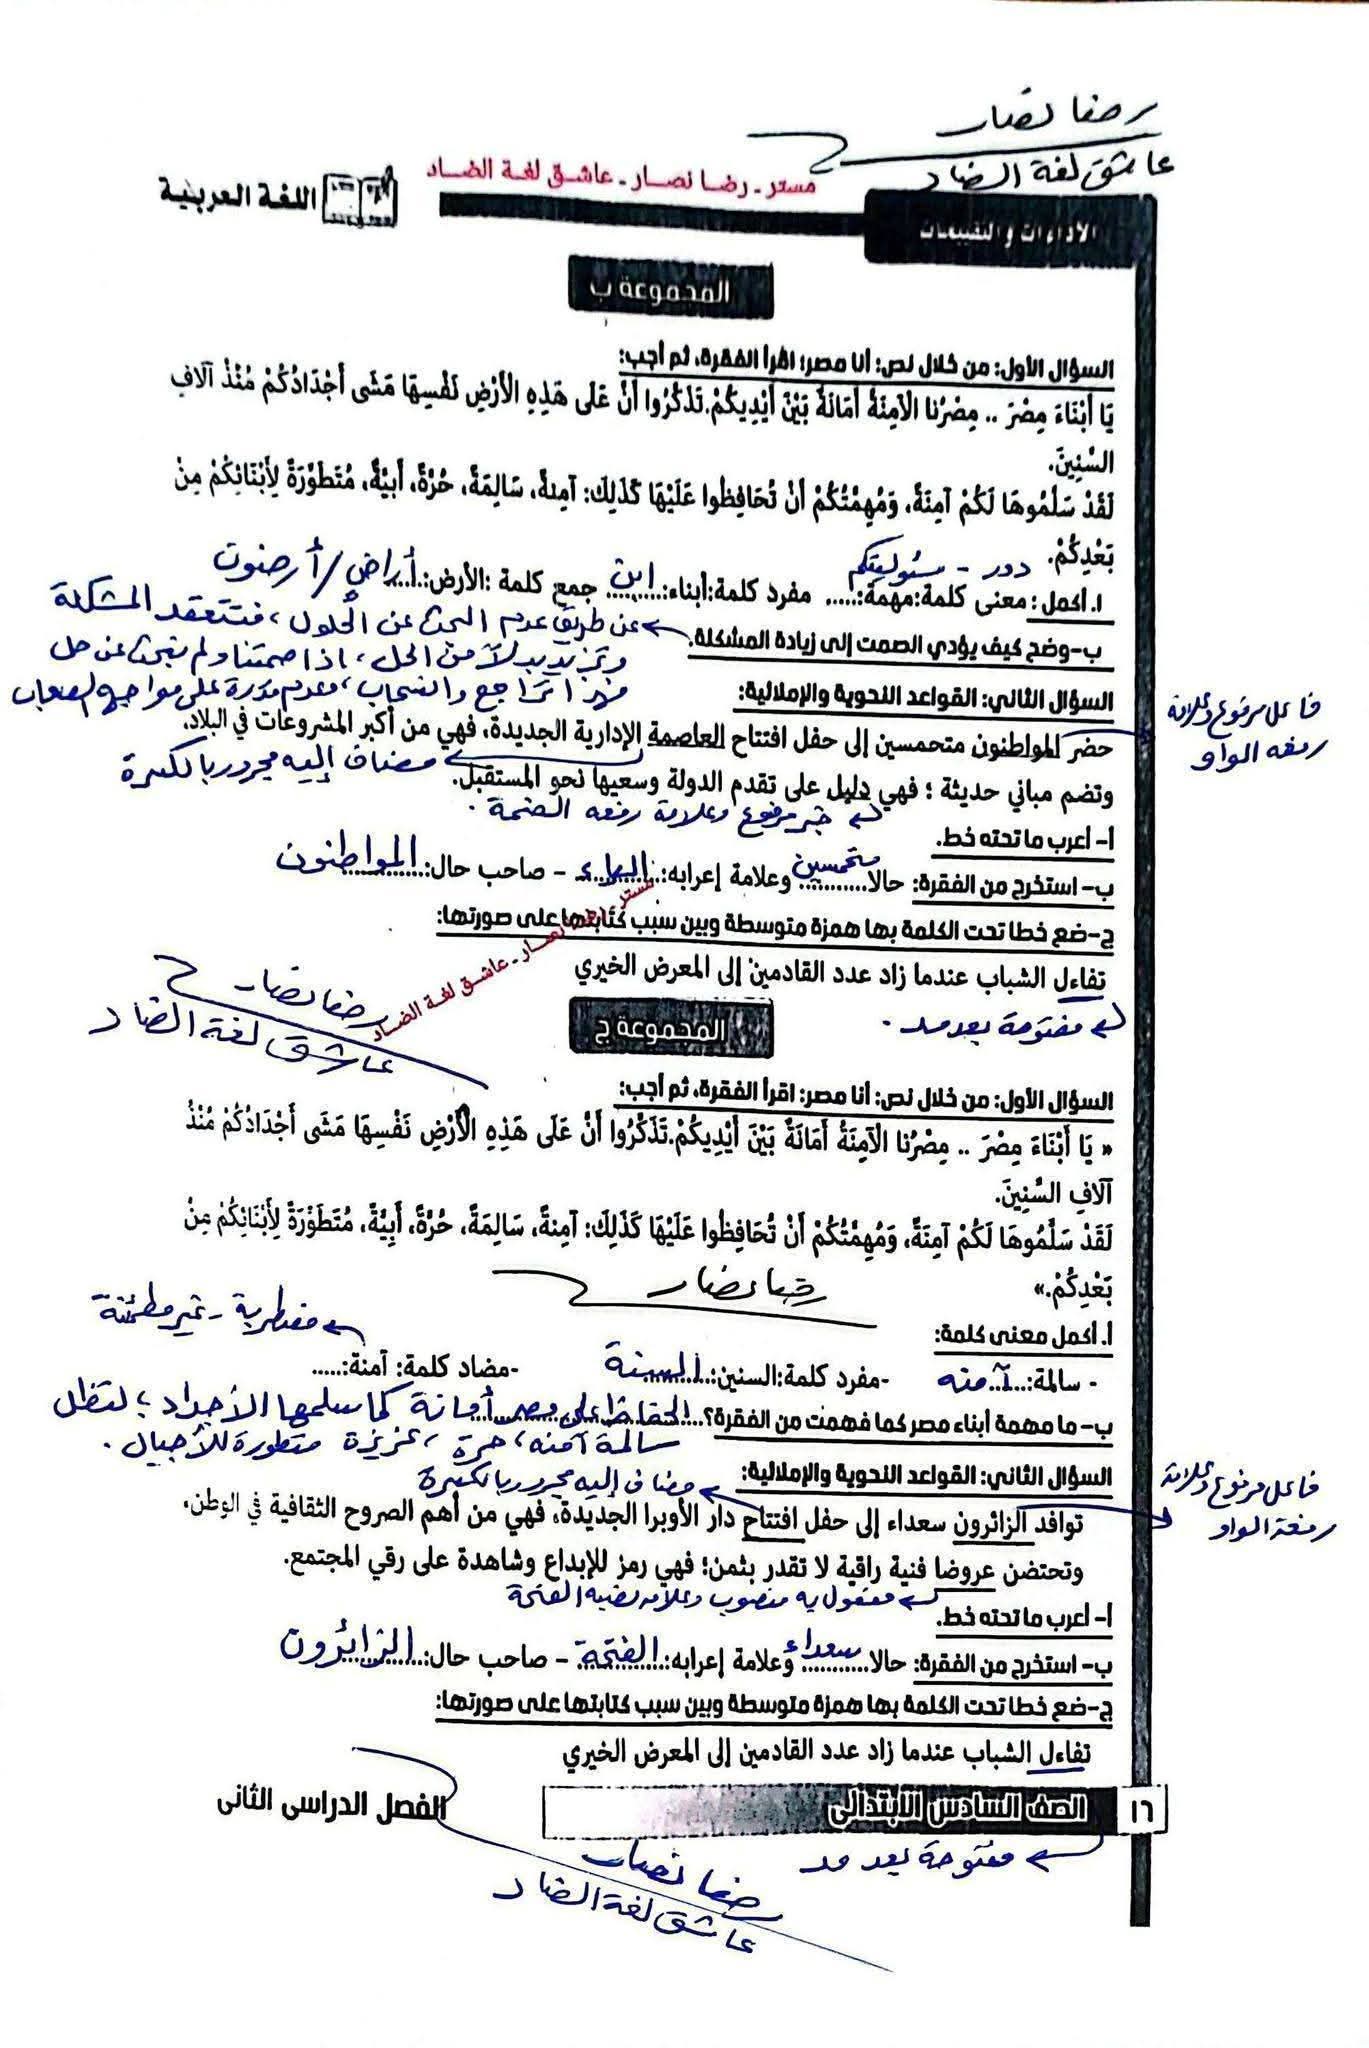 رضا نصار
عاشق لغة الضاد
مستر - رضا نصار - عاشق لغة الضاد
اللغة العربية
الأداءات والتقييمات
المجموعة ب
السؤال الأول: من خلال نص: أنا مصر؛ اقرأ الفقرة، ثم أجب:
يَا أَبْنَاءَ مِصْرَ .. مِصْرُنا الْآمِنَةُ أَمَانَةٌ بَيْنَ أَيْدِيكُمْ.تَذَكَّرُوا أَنَّ عَلَى هَذِهِ الْأَرْضِ نَفْسِهَا مَشَى أَجْدَادُكُمْ مُنْذُ آلَافِ
السِّنِينَ.
لَقَدْ سَلَّمُوهَا لَكُمْ آمِنَةً، وَمُهِمَّتُكُمْ أَنْ تُحَافِظُوا عَلَيْهَا كَذَلِكَ: آمِنةً، سَالِمَةً، حُرَّةً، أَبِيَّةً، مُتَطَوِّرَةً لِأَبْنَائِكُمْ مِنْ
بَعْدِكُمْ.
دور - مسئوليتكم
ا. أكمل: معنى كلمة:مهمة:...... مفرد كلمة:أبناء:...ابن... جمع كلمة :الأرض:...أراضي/أرضون
ب-وضح كيف يؤدي الصمت إلى زيادة المشكلة. عن طريق عدم البحث عن الحلول، فتتعقد المشكلة
وتزيد بدلاً من الحل، اذا صمتنا ولم نبحث عن حل
السؤال الثاني: القواعد النحوية والإملائية:
تراجع وانسحاب، وعدم قدرة على مواجهة الصعاب
حضر المواطنون متحمسين إلى حفل افتتاح العاصمة الإدارية الجديدة، فهي من أكبر المشروعات في البلاد.
فاعل مرفوع وعلامة
رفعه الواو
مضاف إليه مجرور بالكسرة
وتضم مباني حديثة ؛ فهي دليل على تقدم الدولة وسعيها نحو المستقبل.
خبر مرفوع وعلامة رفعه الضمة .
أ- أعرب ما تحته خط.
ب- استخرج من الفقرة: حالا...متحمسين... وعلامة إعرابه:...الياء... - صاحب حال:...المواطنون...
ج-ضع خطا تحت الكلمة بها همزة متوسطة وبين سبب كتابتها على صورتها:
تفاءل الشباب عندما زاد عدد القادمين إلى المعرض الخيري
مفتوحة بعد مد .
مستر - رضا نصار - عاشق لغة الضاد
رضا نصار
عاشق لغة الضاد
المجموعة ج
السؤال الأول: من خلال نص: أنا مصر: اقرأ الفقرة، ثم أجب:
« يَا أَبْنَاءَ مِصْرَ .. مِصْرُنا الْآمِنَةُ أَمَانَةٌ بَيْنَ أَيْدِيكُمْ.تَذَكَّرُوا أَنَّ عَلَى هَذِهِ الْأَرْضِ نَفْسِهَا مَشَى أَجْدَادُكُمْ مُنْذُ
آلَافِ السِّنِينَ.
لَقَدْ سَلَّمُوهَا لَكُمْ آمِنَةً، وَمُهِمَّتُكُمْ أَنْ تُحَافِظُوا عَلَيْهَا كَذَلِكَ: آمِنةً، سَالِمَةً، حُرَّةً، أَبِيَّةً، مُتَطَوِّرَةً لِأَبْنَائِكُمْ مِنْ
بَعْدِكُمْ.»
رضا نصار
أ. أكمل معنى كلمة:
مضطربة - غير مطمئنة
- سالمة:...آمنه -مفرد كلمة:السنين:...السنة... -مضاد كلمة: آمنة:......
ب- ما مهمة أبناء مصر كما فهمت من الفقرة؟...الحفاظ على مصر أمانة كما سلمها الأجداد ؛ لتظل
سالمة آمنه، حرة ،عزيزة متطورة للأجيال .
السؤال الثاني: القواعد النحوية والإملائية:
مضاف إليه مجرور بالكسرة
توافد الزائرون سعداء إلى حفل افتتاح دار الأوبرا الجديدة، فهي من أهم الصروح الثقافية في الوطن،
فاعل مرفوع وعلامة
رفعة الواو
وتحتضن عروضا فنية راقية لا تقدر بثمن؛ فهي رمز للإبداع وشاهدة على رقي المجتمع.
مفعول به منصوب وعلامه نصبه الفتحة
أ- أعرب ما تحته خط.
ب- استخرج من الفقرة: حالا...سعداء... وعلامة إعرابه:...الفتحة... - صاحب حال:...الزائرون...
ج-ضع خطا تحت الكلمة بها همزة متوسطة وبين سبب كتابتها على صورتها:
تفاءل الشباب عندما زاد عدد القادمين إلى المعرض الخيري
١٦
الصف السادس الابتدائي
الفصل الدراسي الثاني
مفتوحة بعد مد
رضا نصار
عاشق لغة الضاد